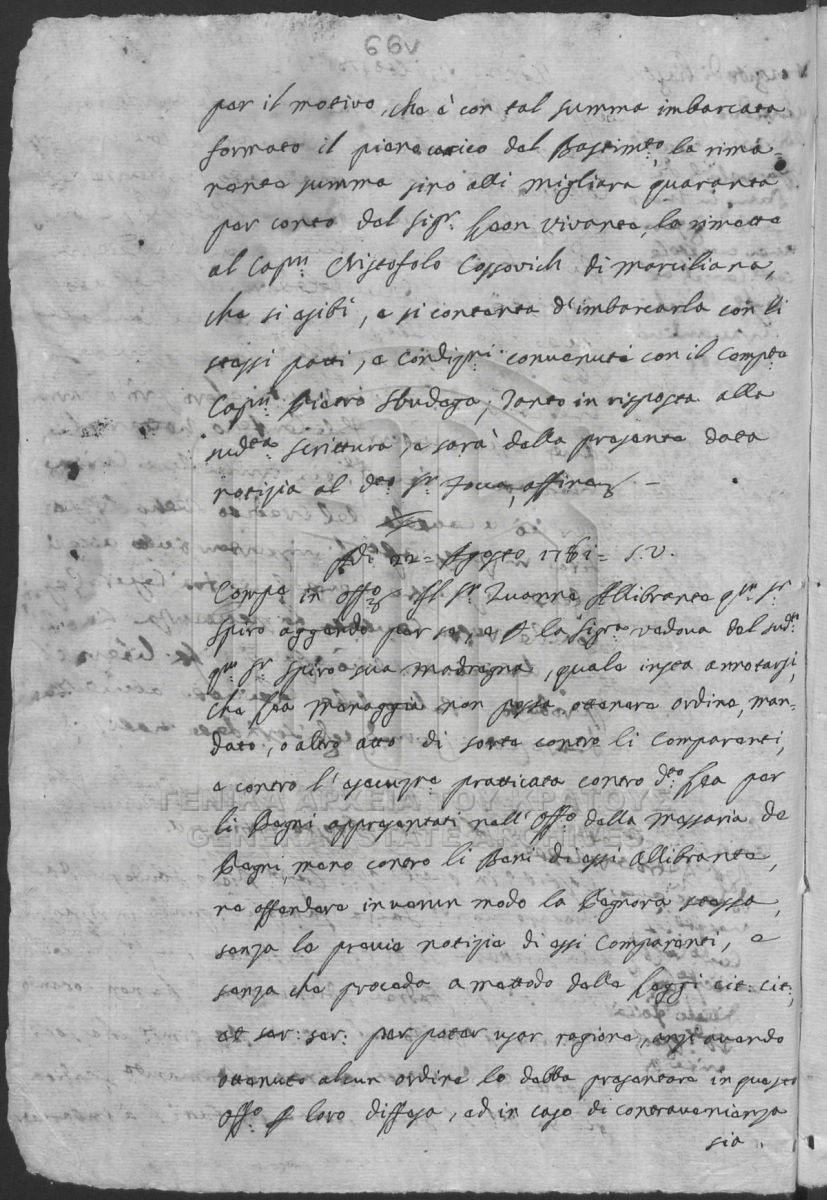 66v
per il motivo, che è con tal summa imbarcata
formato il piene carico del Bastimto, la rima=
nente summa sino alli migliara quaranta
per conto del Sigr. Leon Vivante, la rimette
al Capn. Cristofolo Cossovich di marciliana,
che si esibì, e si contenta d'imbarcarla con li
stessi patti, e condizni. convenute con il Compte
Capn. Pietro Sbudega, Tanto in risposta alla
sudta scrittura, e sarà della presente data
notizia al dto. Sr.
Adi 22 = Agosto 1781 = S. V.
Compe in Offo Il Sr Zuanne Allibrante qm Sr
Spiro aggendo per se, e la Sigra vedova del sudto
qm Sr Spiro sua madregna, quale insta annotarsi,
che Lea Menaggia non possa ottenere ordine, man=
dato, o altro atto di sorte contro li Comparenti,
e contro l'esecuzne pratticata contro dto Lea per
li Pegni appresentati nell' Offo della Messaria de
Pegni, meno contro li Beni di essi Allibrante,
ne offendere in verun modo la Pegnora stessa,
senza la previa notizia di essi Comparenti, e
senza che proceda a mettodo delle Leggi cit: cit:,
et ser: ser: per poter user ragione, anzi avendo
ottenuto alcun ordine lo debba presentare in questo
Offo. loro diffesa, ed in caso di contravenienza
sia.
ΓΕΝΙΚΑ ΑΡΧΕΙΑ ΤΟΥ ΚΡΑΤΟΥΣ
GENERAL STATE ARCHIVES